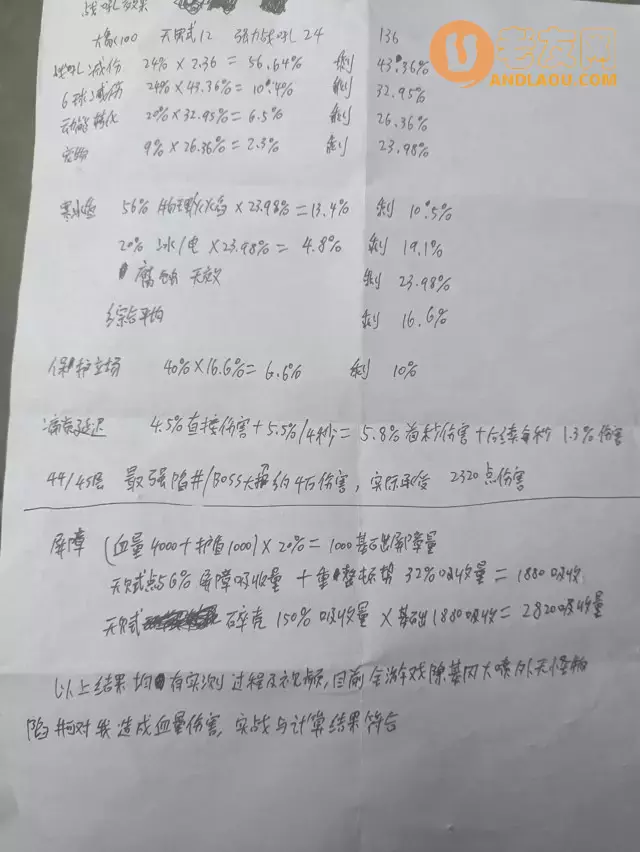 战吼效果
大喊100 天赋式12 强力战吼24 136
战吼减伤 24% × 2.36 = 56.64% 剩 43.36%
6球减伤 24% × 43.36% = 10.4% 剩 32.95%
动能转化 20% × 32.95% = 6.5% 剩 26.36%
9% × 26.36% = 2.3% 剩 23.98%
老友网
ANDLAOU.COM
56% 物理/火/ × 23.98% = 13.4% 剩 10.5%
20% 冰/电 × 23.98% = 4.8% 剩 19.1%
腐蚀 无效 剩 23.98%
综合平均 剩 16.6%
保护立场 40% × 16.6% = 6.6% 剩 10%
痛苦延迟 4.5%直接伤害 + 5.5%/4秒 = 5.8%首秒伤害 + 后续每秒 1.3%伤害
44/45层 最强陷井/BOSS大招约4万伤害, 实际承受 2320点伤害
屏障 (血量4000 + 护盾1000) × 20% = 1000基础屏障量
天赋式点56% 屏障吸收量 + 重整态势 32%吸收量 = 1880吸收
天赋式 碎壳 150%吸收量 × 基础1880吸收 = 2820吸收量
以上结果均有实测过程及视频, 目前全游戏除基因大嘴外无怪物
陷井对我造成血量伤害, 实战与计算结果符合